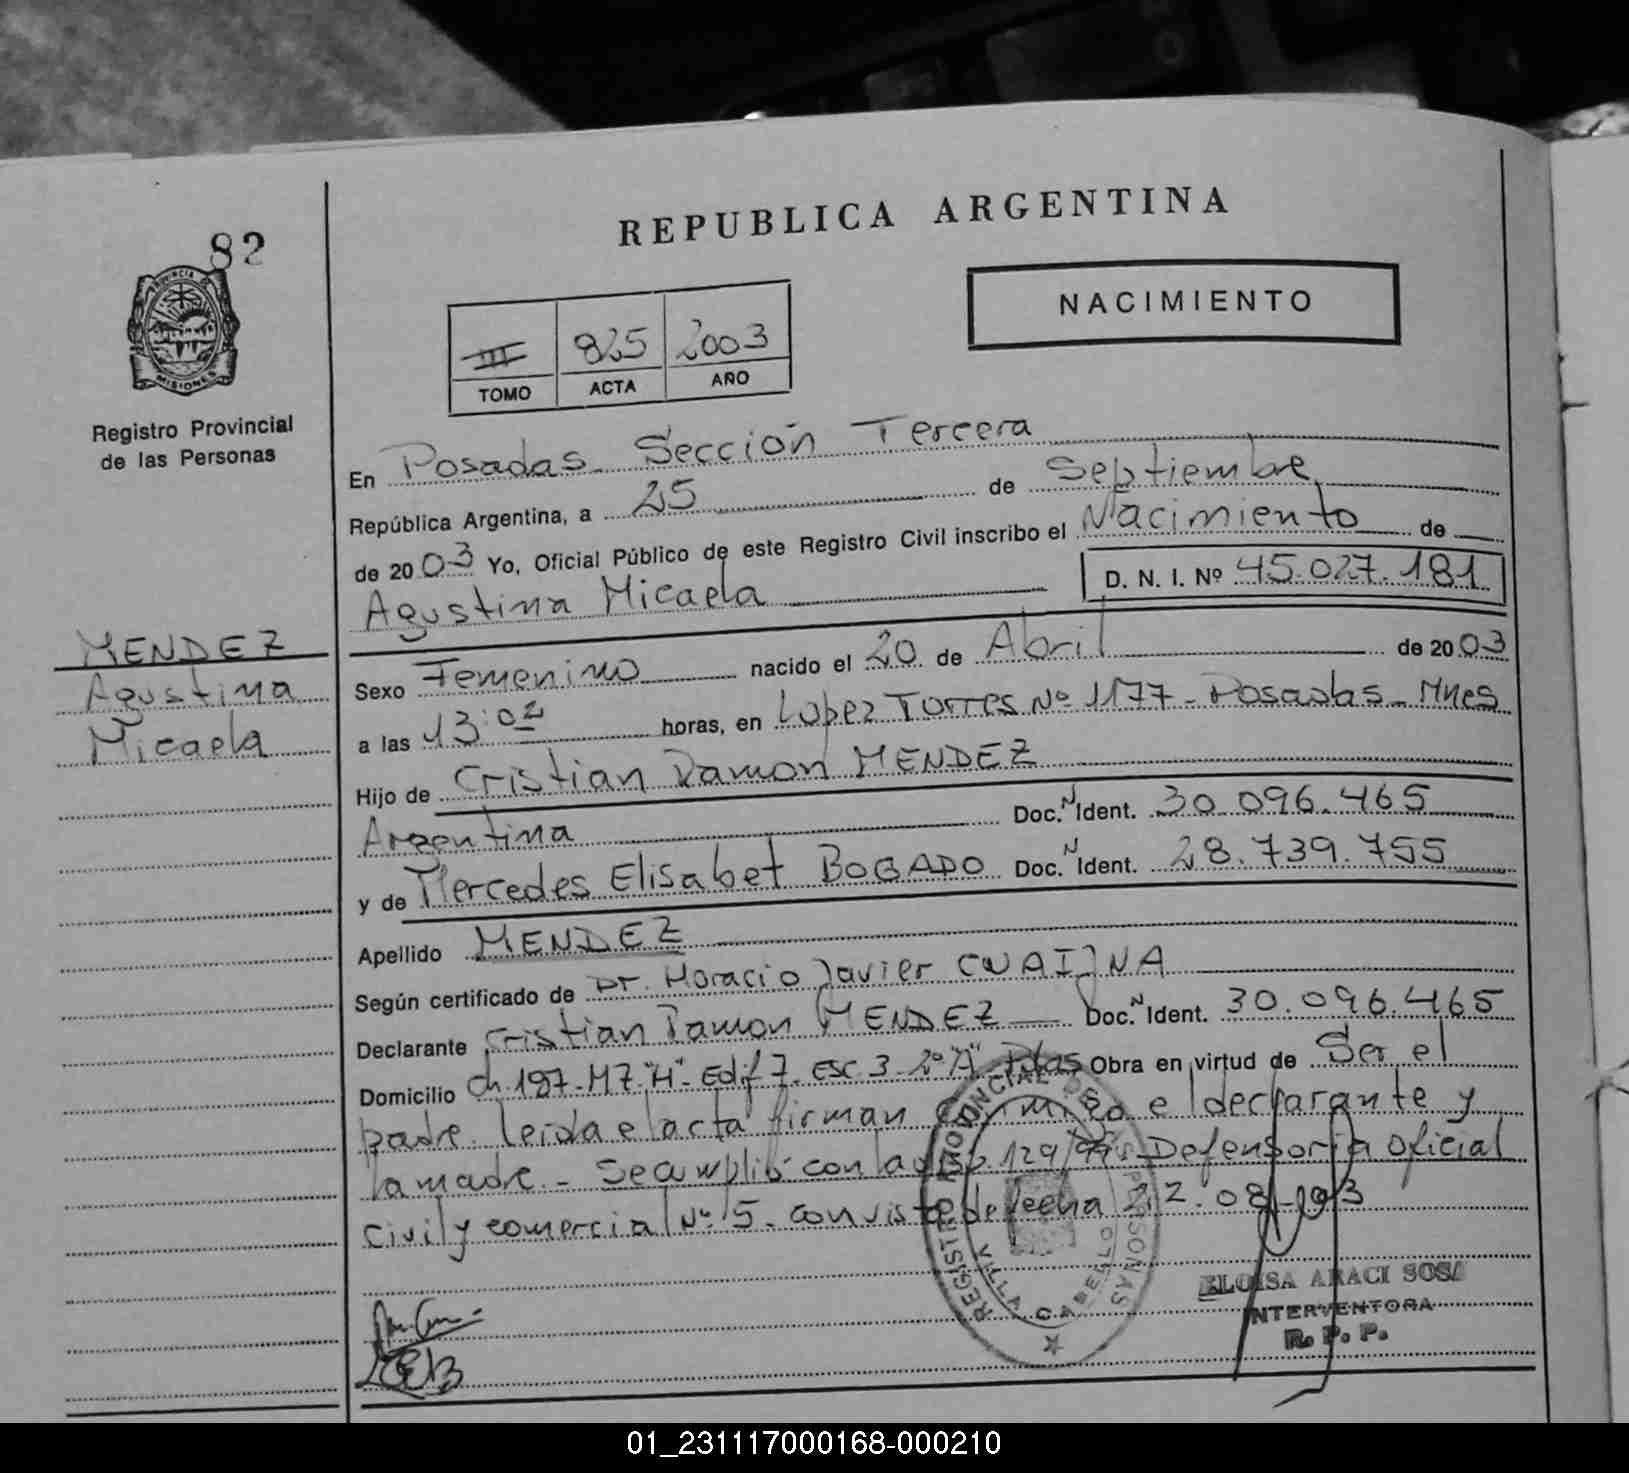 82
PROVINCIA DE
MISIONES
Registro Provincial
de las Personas
REPUBLICA ARGENTINA
NACIMIENTO
III 825 2003
TOMO ACTA AÑO
En Posadas Sección Tercera
República Argentina, a 25 de Septiembre
de 2003 Yo, Oficial Público de este Registro Civil inscribo el Nacimiento de
Agustina Micaela D. N. I. Nº 45.027.181
MENDEZ
Agustina
Micaela
Sexo Femenino nacido el 20 de Abril de 2003
a las 13:02 horas, en Lopez Torres Nº 1177 - Posadas - Mnes
Hijo de Cristian Ramon MENDEZ
Argentina Doc. N Ident. 30.096.465
y de Mercedes Elisabet BOGADO Doc. N Ident. 28.739.755
Apellido MENDEZ
Según certificado de Dr. Horacio Javier
Declarante Cristian Ramon MENDEZ Doc. N Ident. 30.096.465
Domicilio Ch 197 - M7 "H" - Edif 7 - Esc 3 - 2º "A" - Pdas Obra en virtud de Ser el
padre. leida el acta firman el declarante y
la madre. - Se cumplió con la 129/ Defensoria Oficial
Civil y comercial Nº 5. con vista de fecha 08
REGISTRO PROVINCIAL DE LAS PERSONAS
VILLA CABELLO
ELOISA ARACI SOSA
INTERVENTORA
R. P. P.
01_231117000168-000210